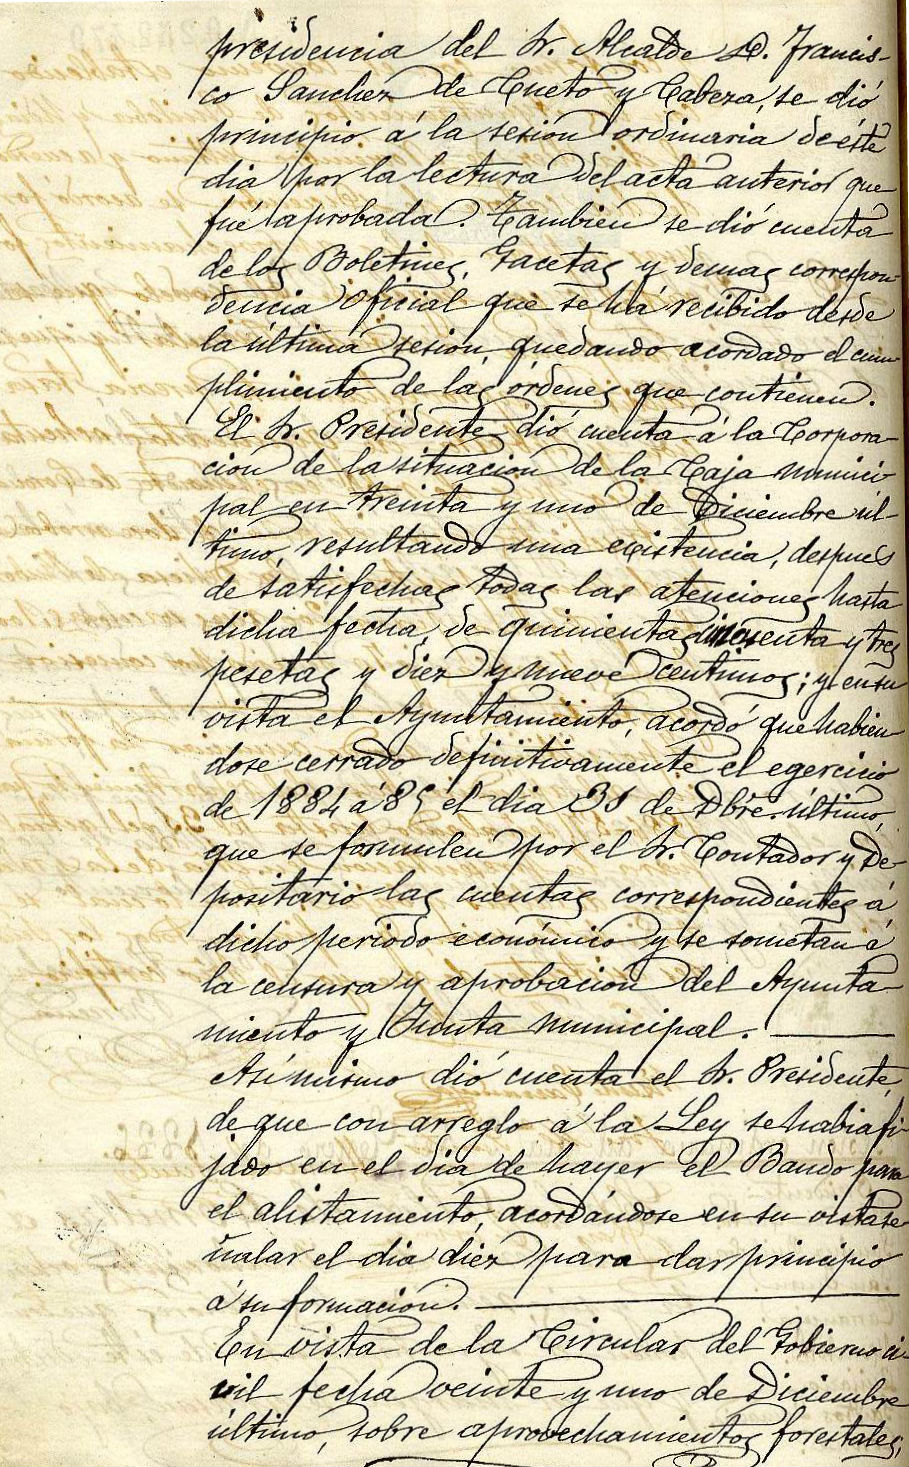 presidencia del Sr. Alcalde D. Francis-
co Sanchez de Cueto y Cabeza, se dió
principio á la sesión ordinaria de éste
dia por la lectura del acta anterior que
fué aprobada. Tambien se dió cuenta
de los Boletines, Gacetas y demas correspon-
dencia oficial que se há recibido desde
la última sesion, quedando acordado el cum-
plimiento de las órdenes que contienen.
El Sr. Presidente dió cuenta á la Corpora-
cion de la situacion de la Caja munici-
pal en treinta y uno de Diciembre úl-
timo, resultando una existencia, despues
de satisfechas todas las atenciones hasta
dicha fecha, de quinientas y tres
pesetas y diez y nueve centimos; y en su
vista el Ayuntamiento, acordó que habien
dose cerrado definitivamente el egercicio
de 1884 á 85 el dia 31 de Dbre. último,
que se formulen por el Sr. Contador y De-
positario las cuentas correspondientes á
dicho periodo económico y se sometan á
la censura y aprobacion del Ayunta-
miento y Junta municipal.
Asímismo dió cuenta el Sr. Presidente,
de que con arreglo á la Ley se habia fi-
jado en el dia de hayer el Bando para
el alistamiento, acordándose en su vista se-
ñalar el dia diez para dar principio
á su formacion.
En vista de la Circular del Gobierno ci-
vil fecha veinte y uno de Diciembre
último, sobre aprovechamientos forestales,